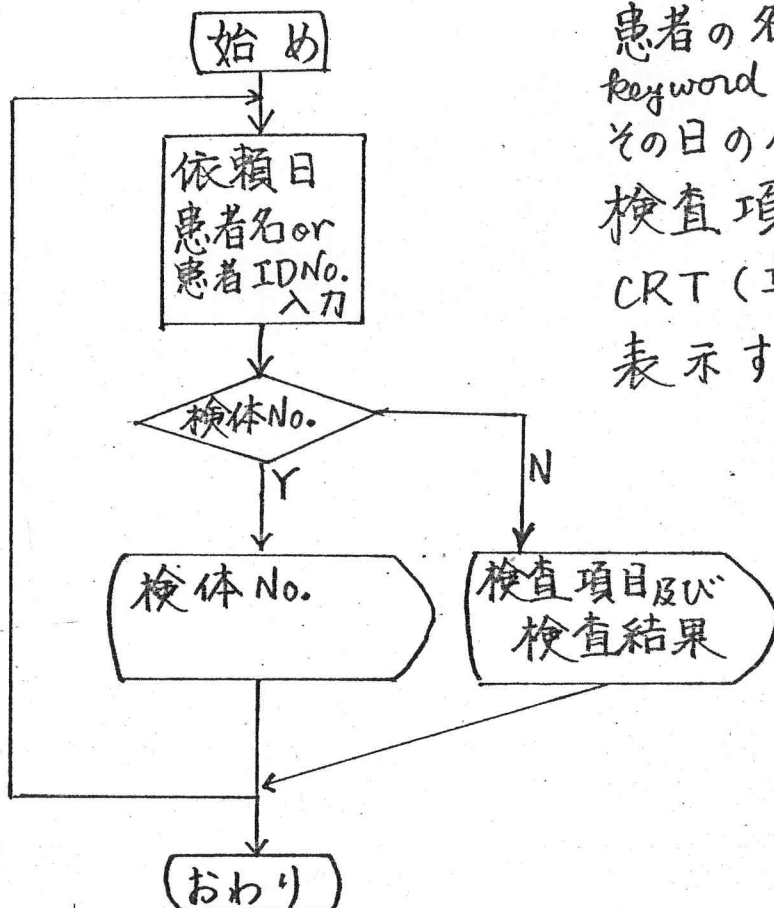 始め
依頼日
患者名or
患者IDNo.
入力
検体No.
Y
N
検体No.
検査項目及び
検査結果
おわり
患者の名
keyword
その日の
検査項
CRT（
表示す